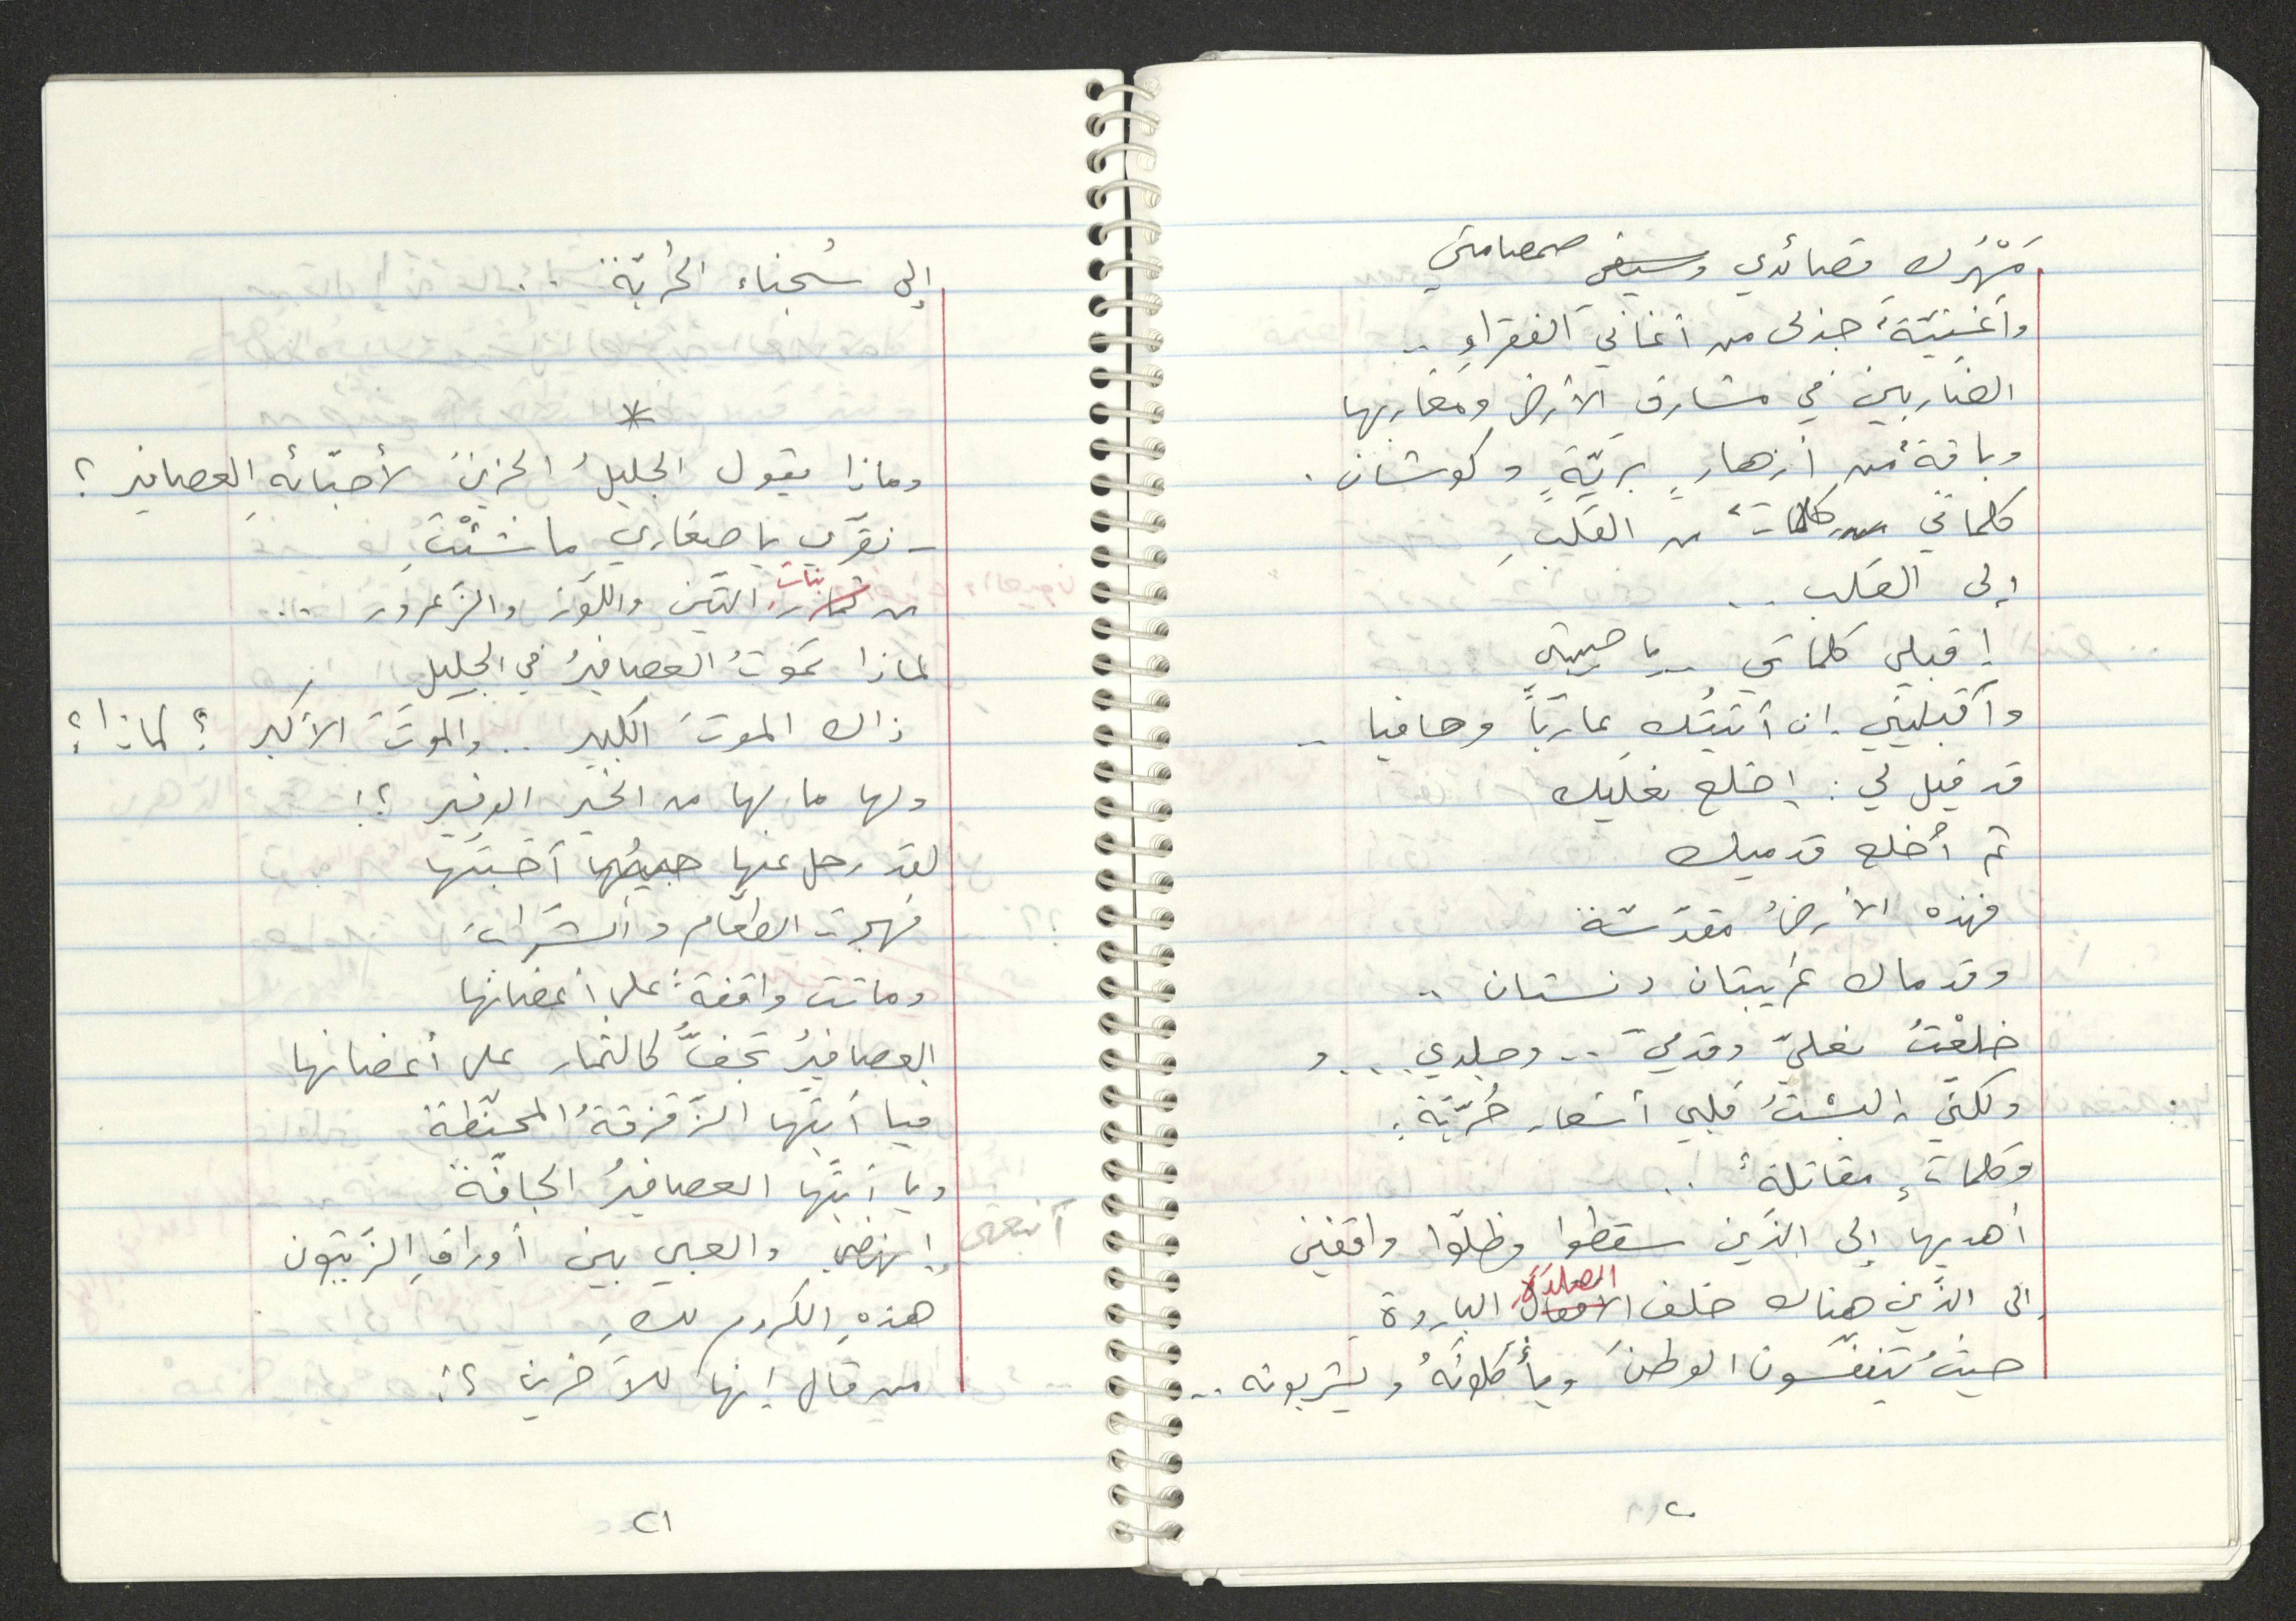 مَهْرُك قصائدي وسيفي صمصامتي
وأغنيةٌ جذلى من أغاني الفقراءِ ..
الضاربين في مشارق الأرض ومغاربها
وباقةٌ من أزهارٍ بريّةٍ وكوشان .
كلماتي كلماتٌ من القلبِ
إلى القلب ..
إقبلي كلماتي .. يا حبيبتي
وأقبليني إن أتيتُكِ عارياً وحافيا ..
قد قيل لي : إخلع نعليك
ثم أخلع قدميك
فهذه الأرضُ مقدّسة
وقدماك غريبتان دنستان ..
خلعْتُ نعليّ وقدميّ .. وجلدي .. و
ولكني ألبستُ قلبي أشعار حُرّيّة .
وكلماتٍ مقاتلةً ..
أهديها إلى الذين سقطوا وظلّوا واقفين
إلى الذين هناك خلف الأقفال الصلدةِ الباردة
حيثُ يتنفّسون الوطنَ ويأكلونَهُ ويشربونه ..
٢٠
إلى سُجناء الحُريّة ..
*
وماذا يقول الجليلُ الحزينُ لأحبّائهِ العصافير ؟
- نقّري يا صغاري ما شئْتِ
من ثمار نباتِ التين واللّوز والزعرور ...
لماذا تموتُ العصافيرُ في الجليل
ذاك الموتَ الكبير .. والموتَ الأكبر ؟ لماذا ؟
ولها ما لها من الخير الوفير ؟!
لقد رحل عنها حبيبُها أحبّتُها
فهجرت الطعام والشّرابَ
وماتت واقفةً على أغصانها
العصافيرُ تجفُّ كالثمار على أغصانها
فيا أيتها الزّقزقةُ المحنّطة
ويا أيتّها العصافيرُ الجافّة
إنهضي والعبي بين أوراقِ الزّيتون
هذهِ الكروم لكِ
من قال إنها للآخرين ؟!
٢١